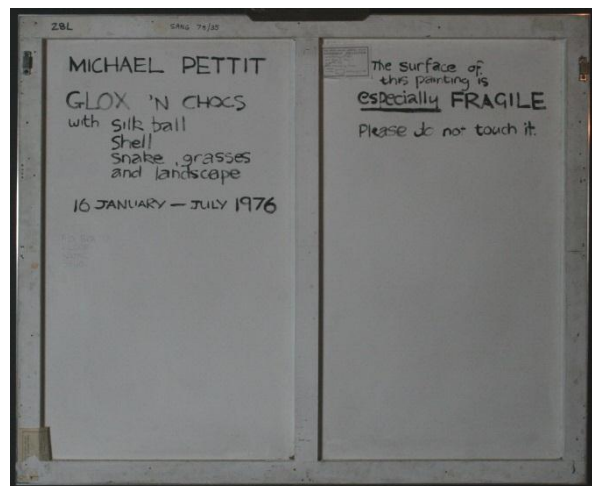 28L
SANG 79/25
MICHAEL PETTIT
GLOX 'N CHOCS
with Silk ball
Shell
Snake, grasses
and landscape
16 JANUARY — JULY 1976
The surface of
this painting is
especially FRAGILE
Please do not touch it.